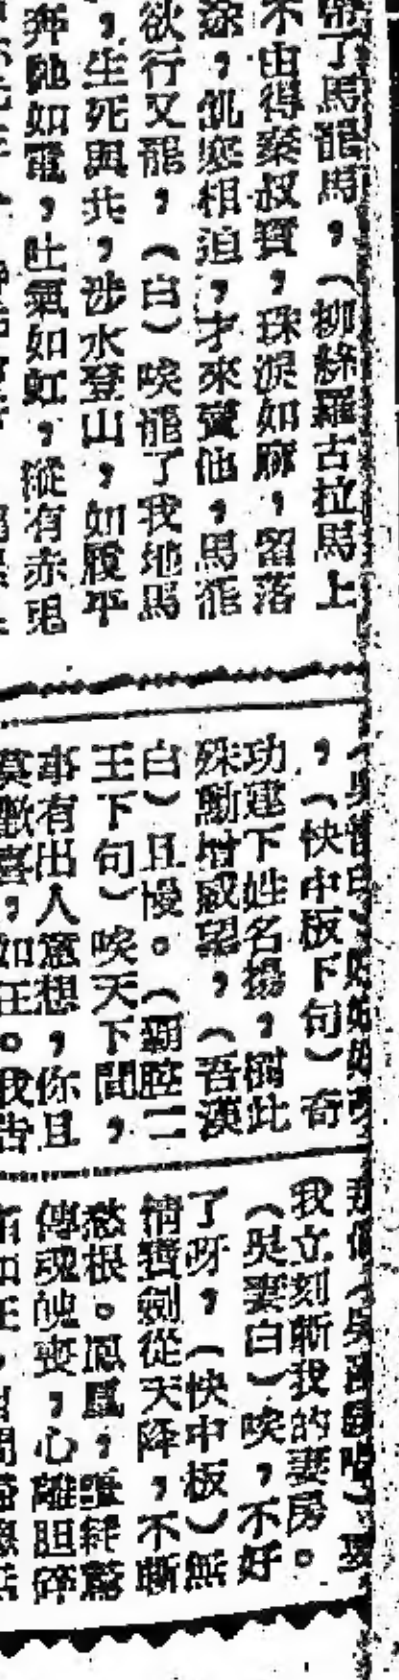 帶了馬龍馬，（柳絲羅古拉馬上
不由得秦叔寶，珠淚如麻，留落
涂，飢寒相迫，才來賣他，馬龍
欲行又罷，（白）唉罷了我地馬
，生死與共，涉水登山，如履平
奔馳如電，吐氣如虹，縱有赤兎
，（快中板下句）奇
功建下姓名揚，樹此
殊勳增威望，（吾漢
白）且慢。（霸腔二
王下句）唉天下間，
事有出人意想，你且
莫歡喜，如在。我告
我立刻斬我的妻房。
（吳妻白）唉，不好
了呀，（快中板）無
情寶劍從天降，不斷
愁根。鳳凰，
傳魂魄喪，心離胆碎